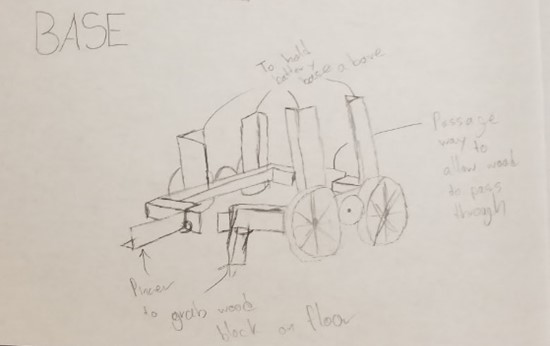 BASE
To hold
battery
base above
Passage
way to
allow wood
to pass
through
Pincer
to grab wood
block on floor